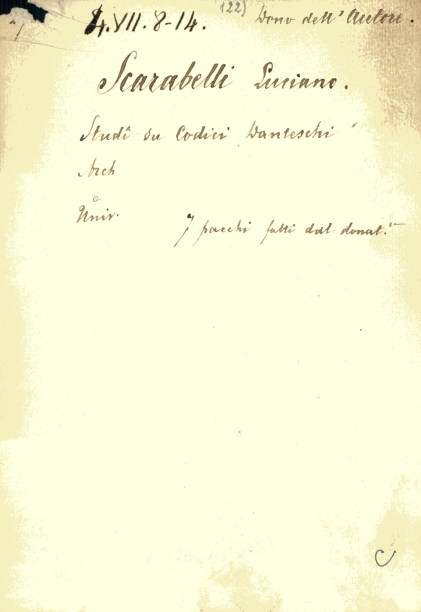 4.VII.8-14. (22) Dono dell'Autore.
Scarabelli Luciano.
Studî su Codici Danteschi
Arch
e
Univ. 7 pacchi fatti dal donat.re
C